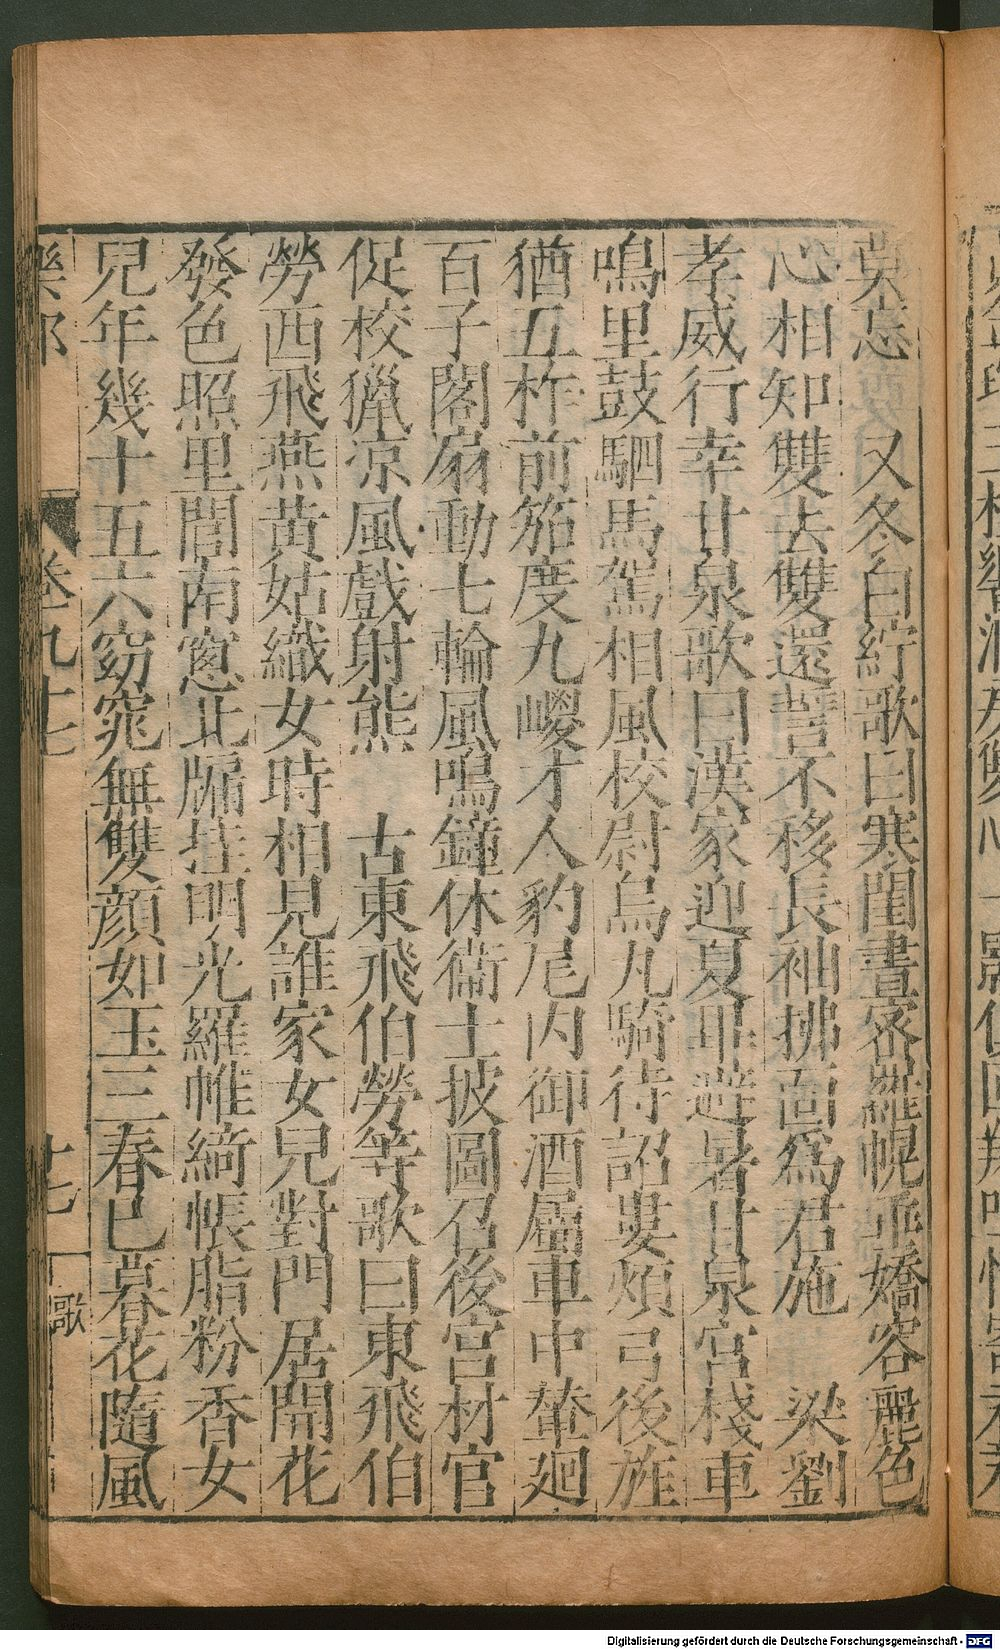 吳忘　又冬白紵歌曰寒閨晝密羅幌垂嬌容麗色
心相知雙去雙還誓不移長袖拂面爲君施　梁劉
孝威行幸甘泉歌曰漢家迎夏畢避暑甘泉宮棧車
鳴里鼓駟馬駕相風校尉烏丸騎待詔婁煩弓後旌
猶五柞前笳度九嵕才人豹尾内御酒屬車中輦廻
百子閣扇動七輪風鳴鐘休衞士披圖召後宮材官
促校獵涼風戲射熊　古東飛伯勞等歌曰東飛伯
勞西飛燕黃姑織女時相見誰家女兒對門居開花
發色照里閭南窻北牖挂明光羅帷綺帳脂粉香女
兒年幾十五六窈窕無雙顔如玉三春已暮花隨風
樂部　卷九十七　十七　歌
Digitalisierung gefördert durch die Deutsche Forschungsgemeinschaft - DFG